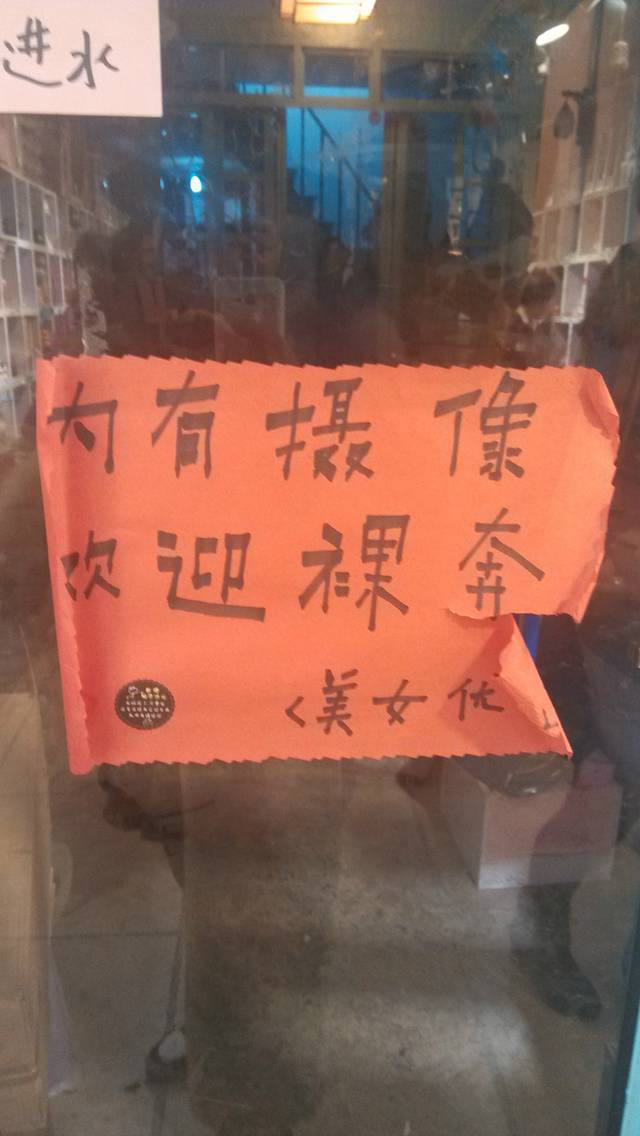 进水
内有摄像
欢迎裸奔
(美女优